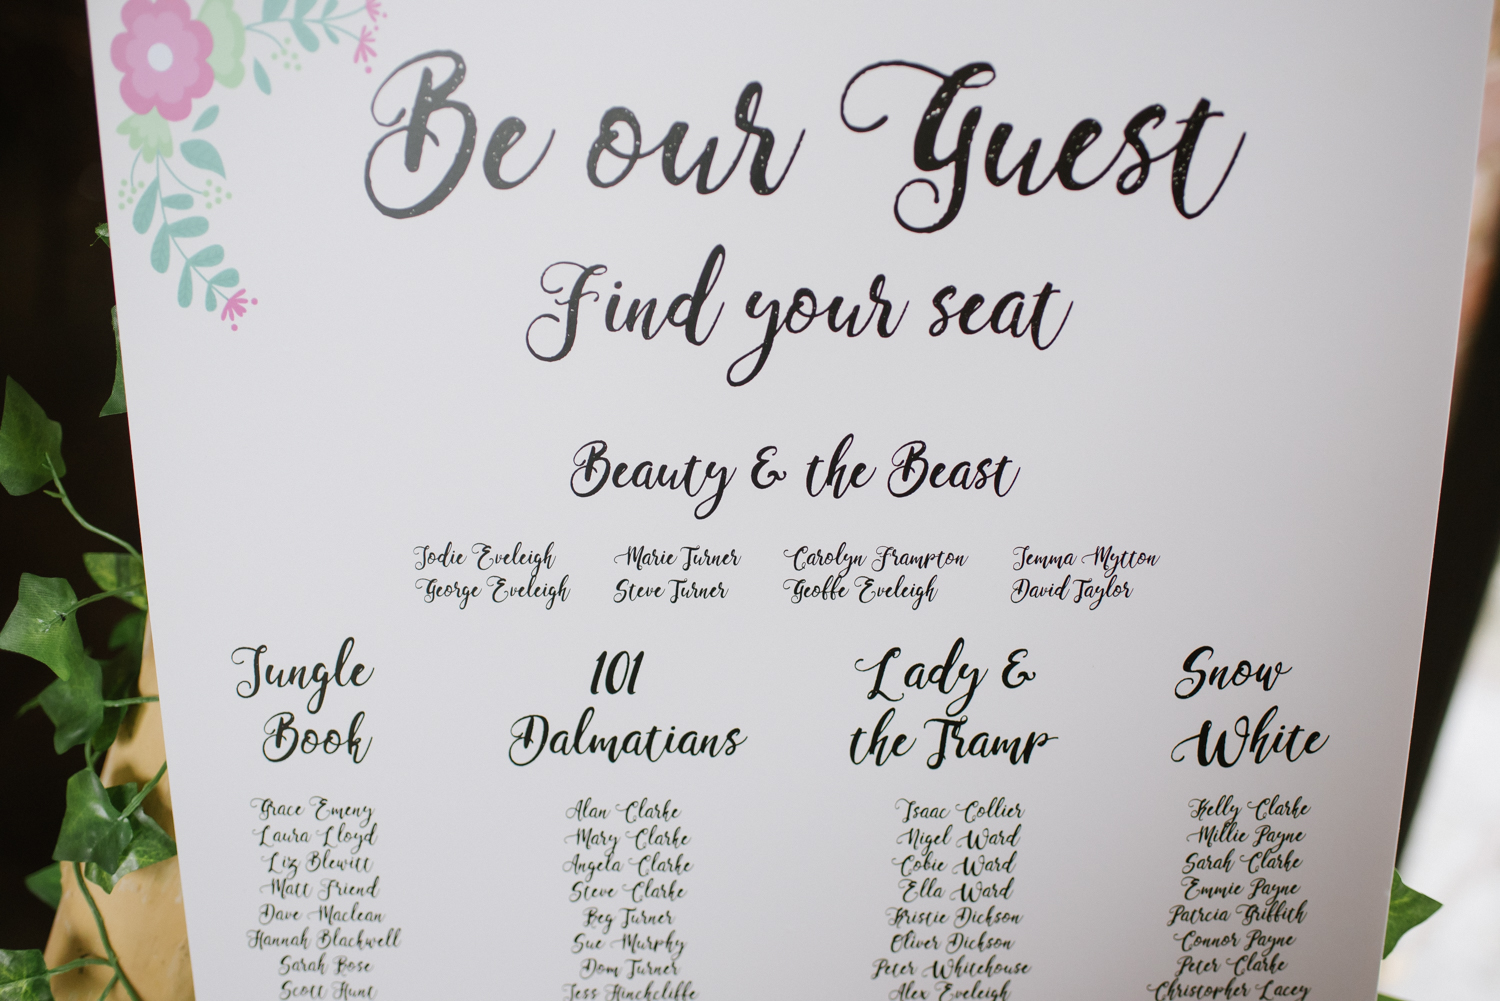 Be our Guest
Find your seat
Beauty & the Beast
Jodie Eveleigh Marie Turner Carolyn Frampton Jemma Mytton
George Eveleigh Steve Turner Geoffe Eveleigh David Taylor
Jungle Book
Grace Emeny
Laura Lloyd
Liz Blewitt
Matt Friend
Dave Maclean
Hannah Blackwell
Sarah Rose
Scott Hunt
101 Dalmatians
Alan Clarke
Mary Clarke
Angela Clarke
Steve Clarke
Reg Turner
Sue Murphy
Dom Turner
Jess Hinchcliffe
Lady & the Tramp
Isaac Collier
Nigel Ward
Cobie Ward
Ella Ward
Kristie Dickson
Oliver Dickson
Peter Whitehouse
Alex Eveleigh
Snow White
Kelly Clarke
Millie Payne
Sarah Clarke
Emmie Payne
Patrcia Griffith
Connor Payne
Peter Clarke
Christopher Lacey